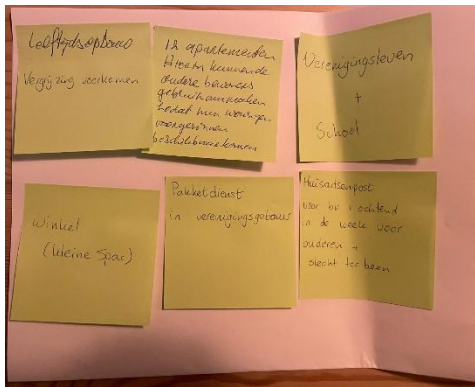 Leeftijdsopbouw
Vergrijzing voorkomen
12 apartementen
hierin kunnen de
oudere bewoners
gebruik van maken
zodat hun woningen
voor gezinnen
beschikbaar komen
Verenigingsleven
+
School
Winkel
(kleine Spar)
Pakketdienst
in verenigingsgebouw
Huisartsenpost
voor bv 1 ochtend
in de week voor
ouderen +
slecht ter been